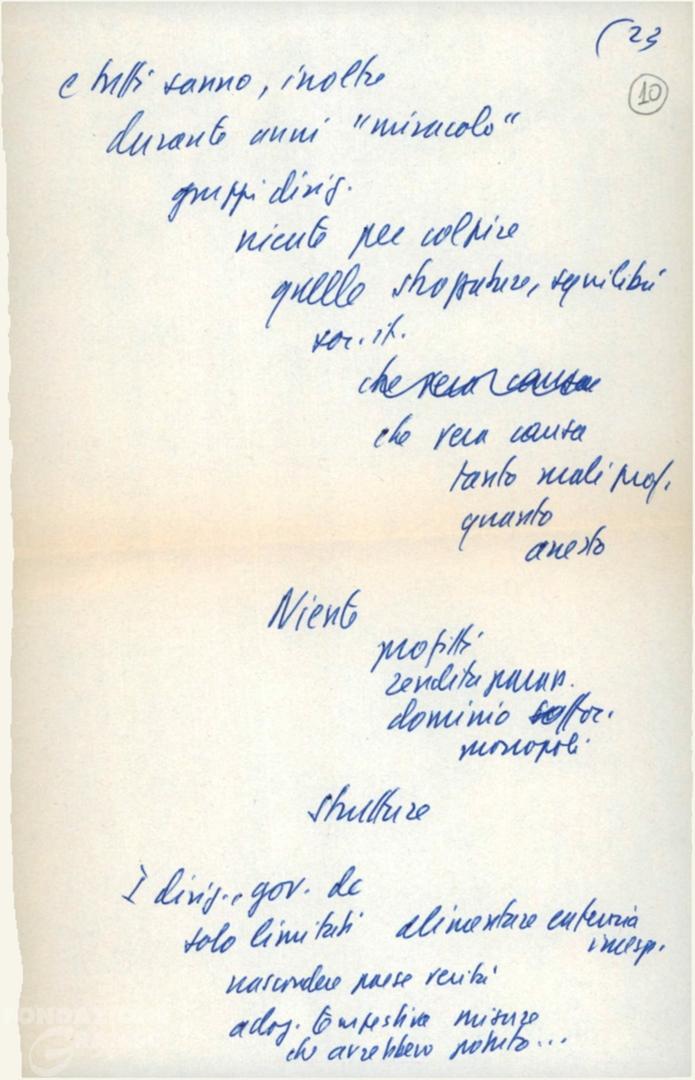 (23
10
e tutti sanno, inoltre
durante anni "miracolo"
gruppi dirig.
niente per colpire
quelle strozzature, squilibri
che vera causa
che vera causa
tanto mali prof.
quanto
arresto
Niente
profitti
rendita
dominio
monopoli
strutture
I dirig., gov. dc
solo limitati alimentare euforia
nascondere paese verità
adog. tempestive misure
che avrebbero potuto...
FONDAZIONE
GRAMSCI